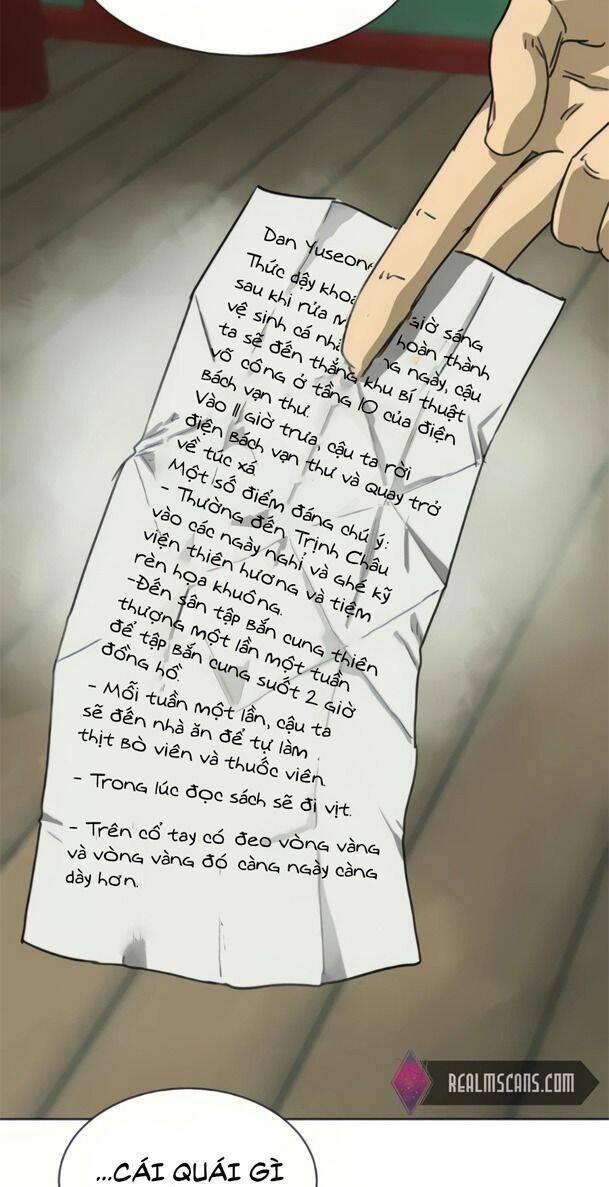 Dan Yuseon
Thức dậy giờ sáng
sau khi rửa hoàn thành
vệ sinh cá ngày, cậu
ta sẽ đến thẳng khu bí thuật
võ công ở tầng 10 của điện
Bách vạn thư.
Vào 11 giờ trưa, cậu ta rời
điện Bách vạn thư và quay trở
về túc xá
Một số điểm đáng chú ý:
- Thường đến Trịnh Châu
vào các ngày nghỉ và ghé kỹ
viện thiên hương và tiệm
rèn họa khuông.
-Đến sân tập bắn cung thiên
thượng một lần một tuần
để tập bắn cung suốt 2 giờ
đồng hồ.
- Mỗi tuần một lần, cậu ta
sẽ đến nhà ăn để tự làm
thịt bò viên và thuốc viên.
- Trong lúc đọc sách sẽ đi vịt.
- Trên cổ tay có đeo vòng vàng
và vòng vàng đó càng ngày càng
dày hơn.
REALMSCANS.COM
...CÁI QUÁI GÌ